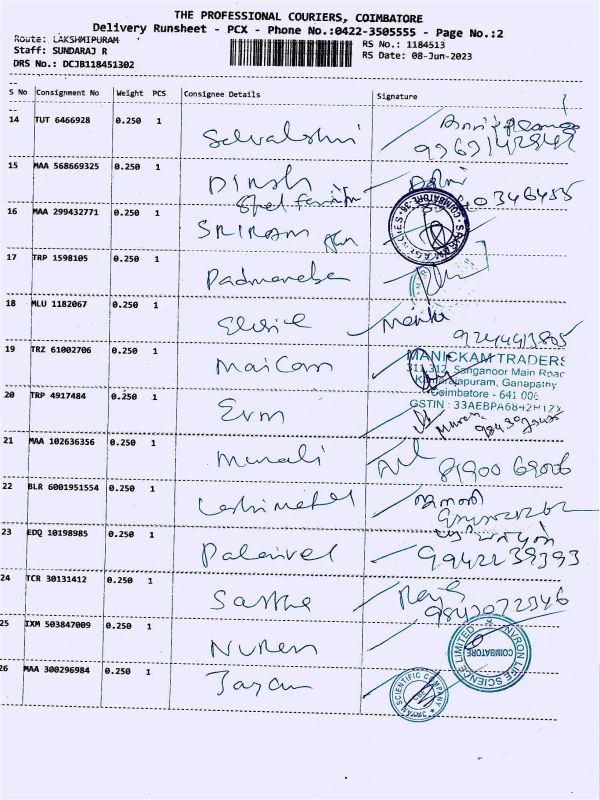 THE PROFESSIONAL COURIERS, COIMBATORE
Delivery Runsheet - PCX - Phone No.:0422-3505555 - Page No.:2
Route: LAKSHMIPURAM
RS No.: 1184513
Staff: SUNDARAJ R
RS Date: 08-Jun-2023
DRS No.: DCJB118451302
S No Consignment No Weight PCS Consignee Details Signature
14 TUT 6466928 0.250 1
15 MAA 568669325 0.250 1 Dinsh
16 MAA 299432771 0.250 1 SRIRAM
COIMBATORE
17 TRP 1598105 0.250 1 Padmanaba
18 MLU 1182067 0.250 1
19 TRZ 61002706 0.250 1 Maicam
MANICKAM TRADERS
311,312, Sanganoor Main Road
Kamarajapuram, Ganapathy
Coimbatore - 641 006
GSTIN : 33AEBPA6842H1ZX
20 TRP 4917484 0.250 1 Erm
21 MAA 102636356 0.250 1 Murali
81900 69006
22 BLR 6001951554 0.250 1
23 EDQ 10198985 0.250 1 Palanivel
9942239393
24 TCR 30131412 0.250 1 Sastha
9843072346
25 IXM 503847009 0.250 1 Nuren
NVRON LIFE SCIENCE LIMITED
COIMBATORE
26 MAA 300296984 0.250 1 Jayam
SCIENTIFIC COMPANY